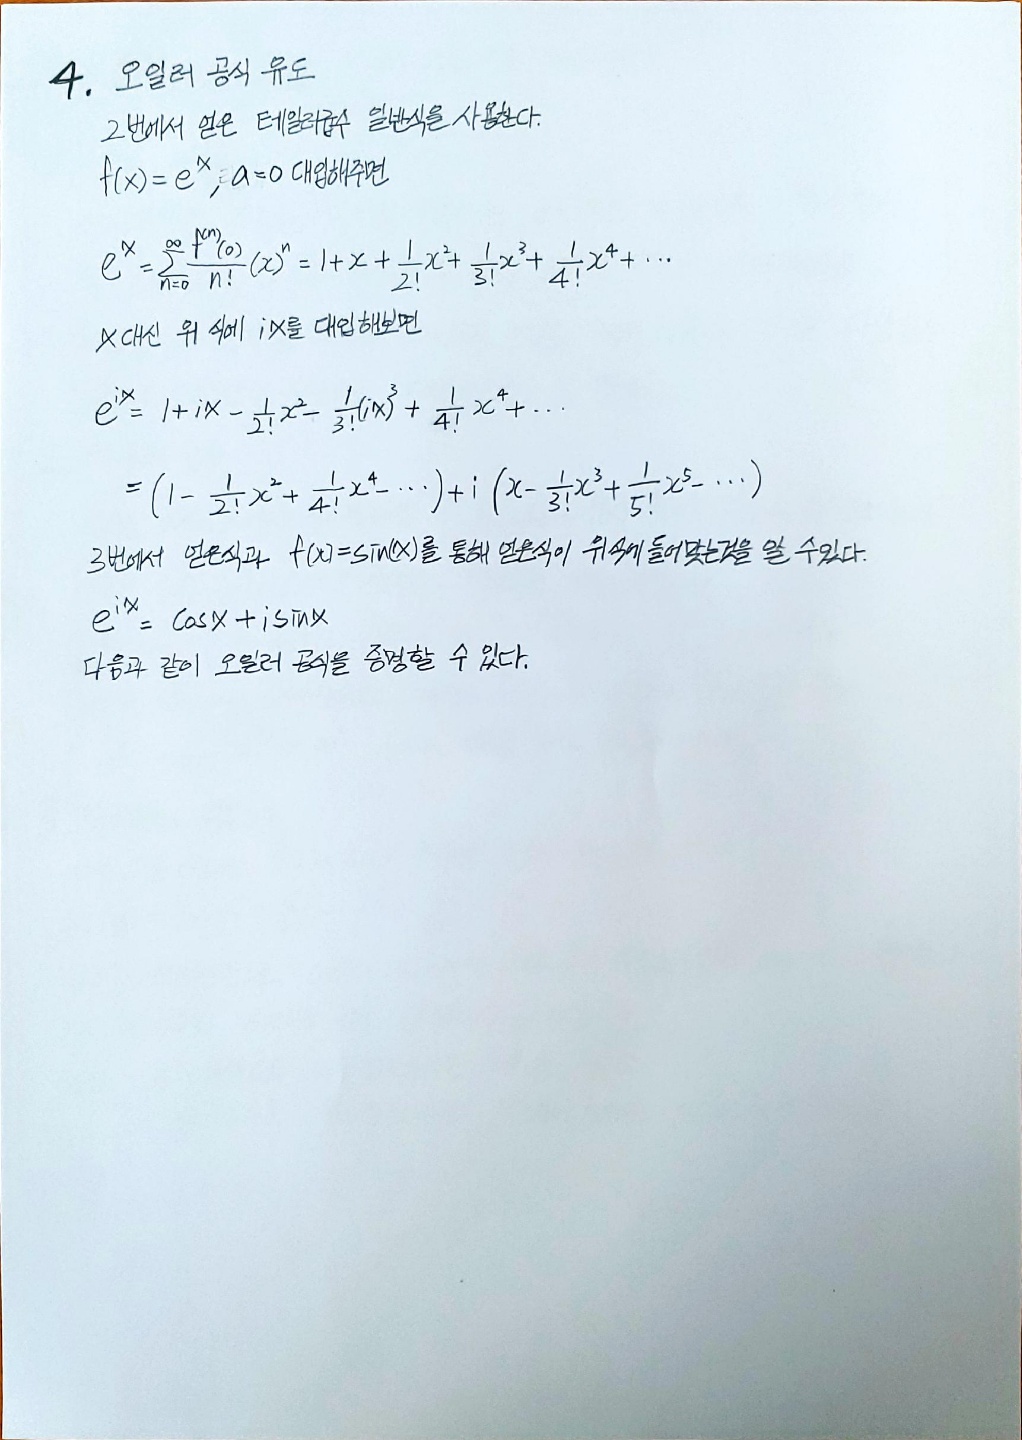 4. 오일러 공식 유도
2번에서 얻은 테일러급수 일반식을 사용한다.
f(x) = e^x, a=0 대입해주면
e^x = ∑_{n=0}^{∞} f^{(n)}(0)/n! (x)^n = 1 + x + 1/2! x² + 1/3! x³ + 1/4! x⁴ + ...
x 대신 위 식에 ix를 대입해보면
e^{ix} = 1 + ix - 1/2! x² - 1/3! (ix)³ + 1/4! x⁴ + ...
= (1 - 1/2! x² + 1/4! x⁴ - ...) + i (x - 1/3! x³ + 1/5! x⁵ - ...)
3번에서 얻은식과 f(x)=sin(x)를 통해 얻은식이 위식에 들어맞는것을 알 수 있다.
e^{ix} = cosx + isinx
다음과 같이 오일러 공식을 증명할 수 있다.